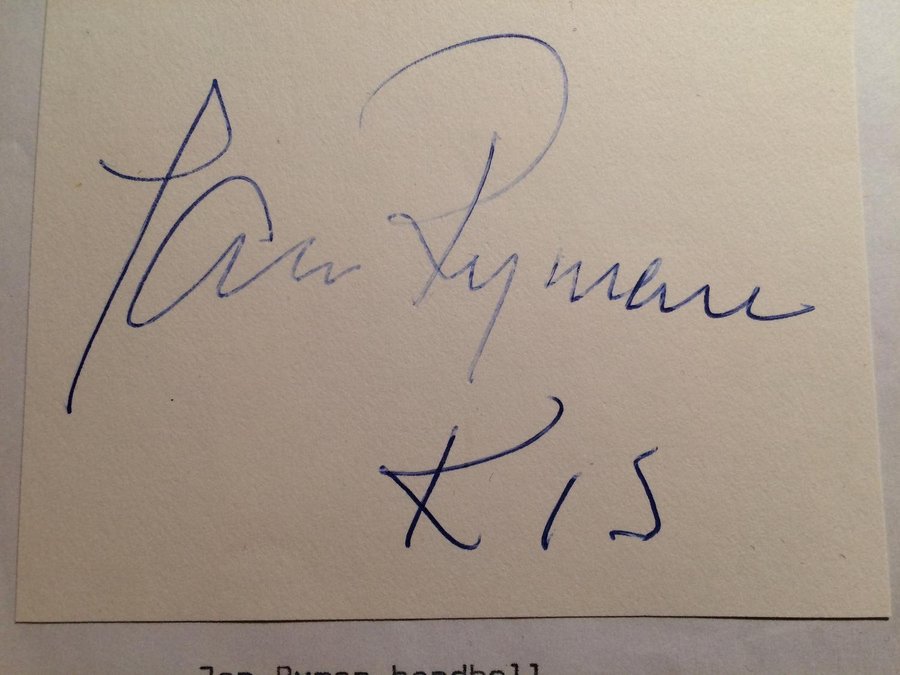 Jan Ryman
K I S
Jan Ryman handboll